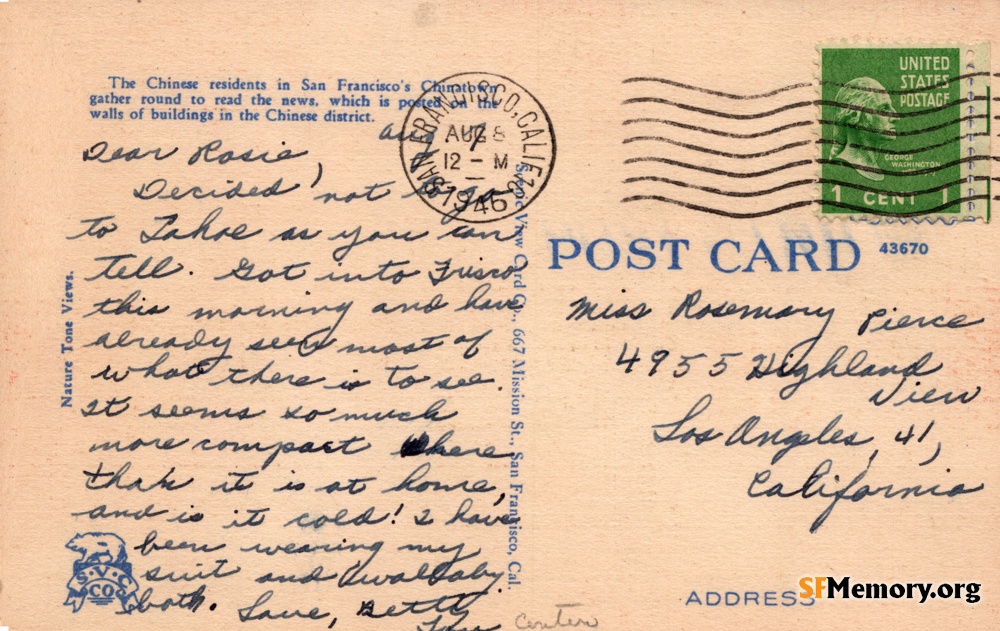 The Chinese residents in San Francisco's Chinatown
gather round to read the news, which is posted on the
walls of buildings in the Chinese district.
Dear Rosie,
Decided not to go
to Tahoe as you can
tell. Got into Frisco
this morning and have
already seen most of
what there is to see.
It seems so much
more compact here
than it is at home,
and is it cold! I have
been wearing my
suit and
both. Love, Betty
Lou
Nature Tone Views.
S.V.C
CO
Scenic View Card Co., 667 Mission St., San Francisco, Cal.
SAN FRANCISCO, CALIF.
AUG 8
12 - M
1946
UNITED
STATES
POSTAGE
GEORGE
WASHINGTON
1 CENT 1
POST CARD
43670
Miss Rosemary Pierce
4955 Highland
View
Los Angeles, 41,
California
ADDRESS
SFMemory.org